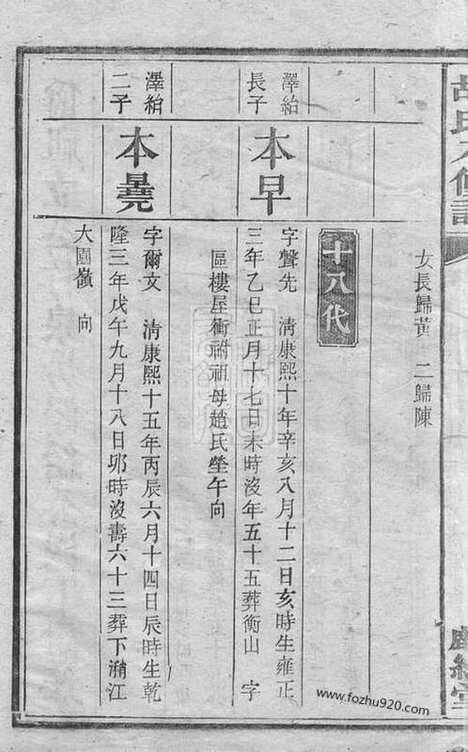 女長歸黃 二歸陳
十八代
澤紿
長子
本早
字聲先 清康熙十年辛亥八月十二日亥時生雍正
三年乙巳正月十七日未時沒年五十五葬衡山 字
區樓屋衝祔祖母趙氏塋午向
澤紿
二子
本
字爾文 清康熙十五年丙辰六月十四日辰時生乾
隆三年戊午九月十八日卯時沒壽六十三葬下瀟江
大園嶺 向
www.fozhu920.com